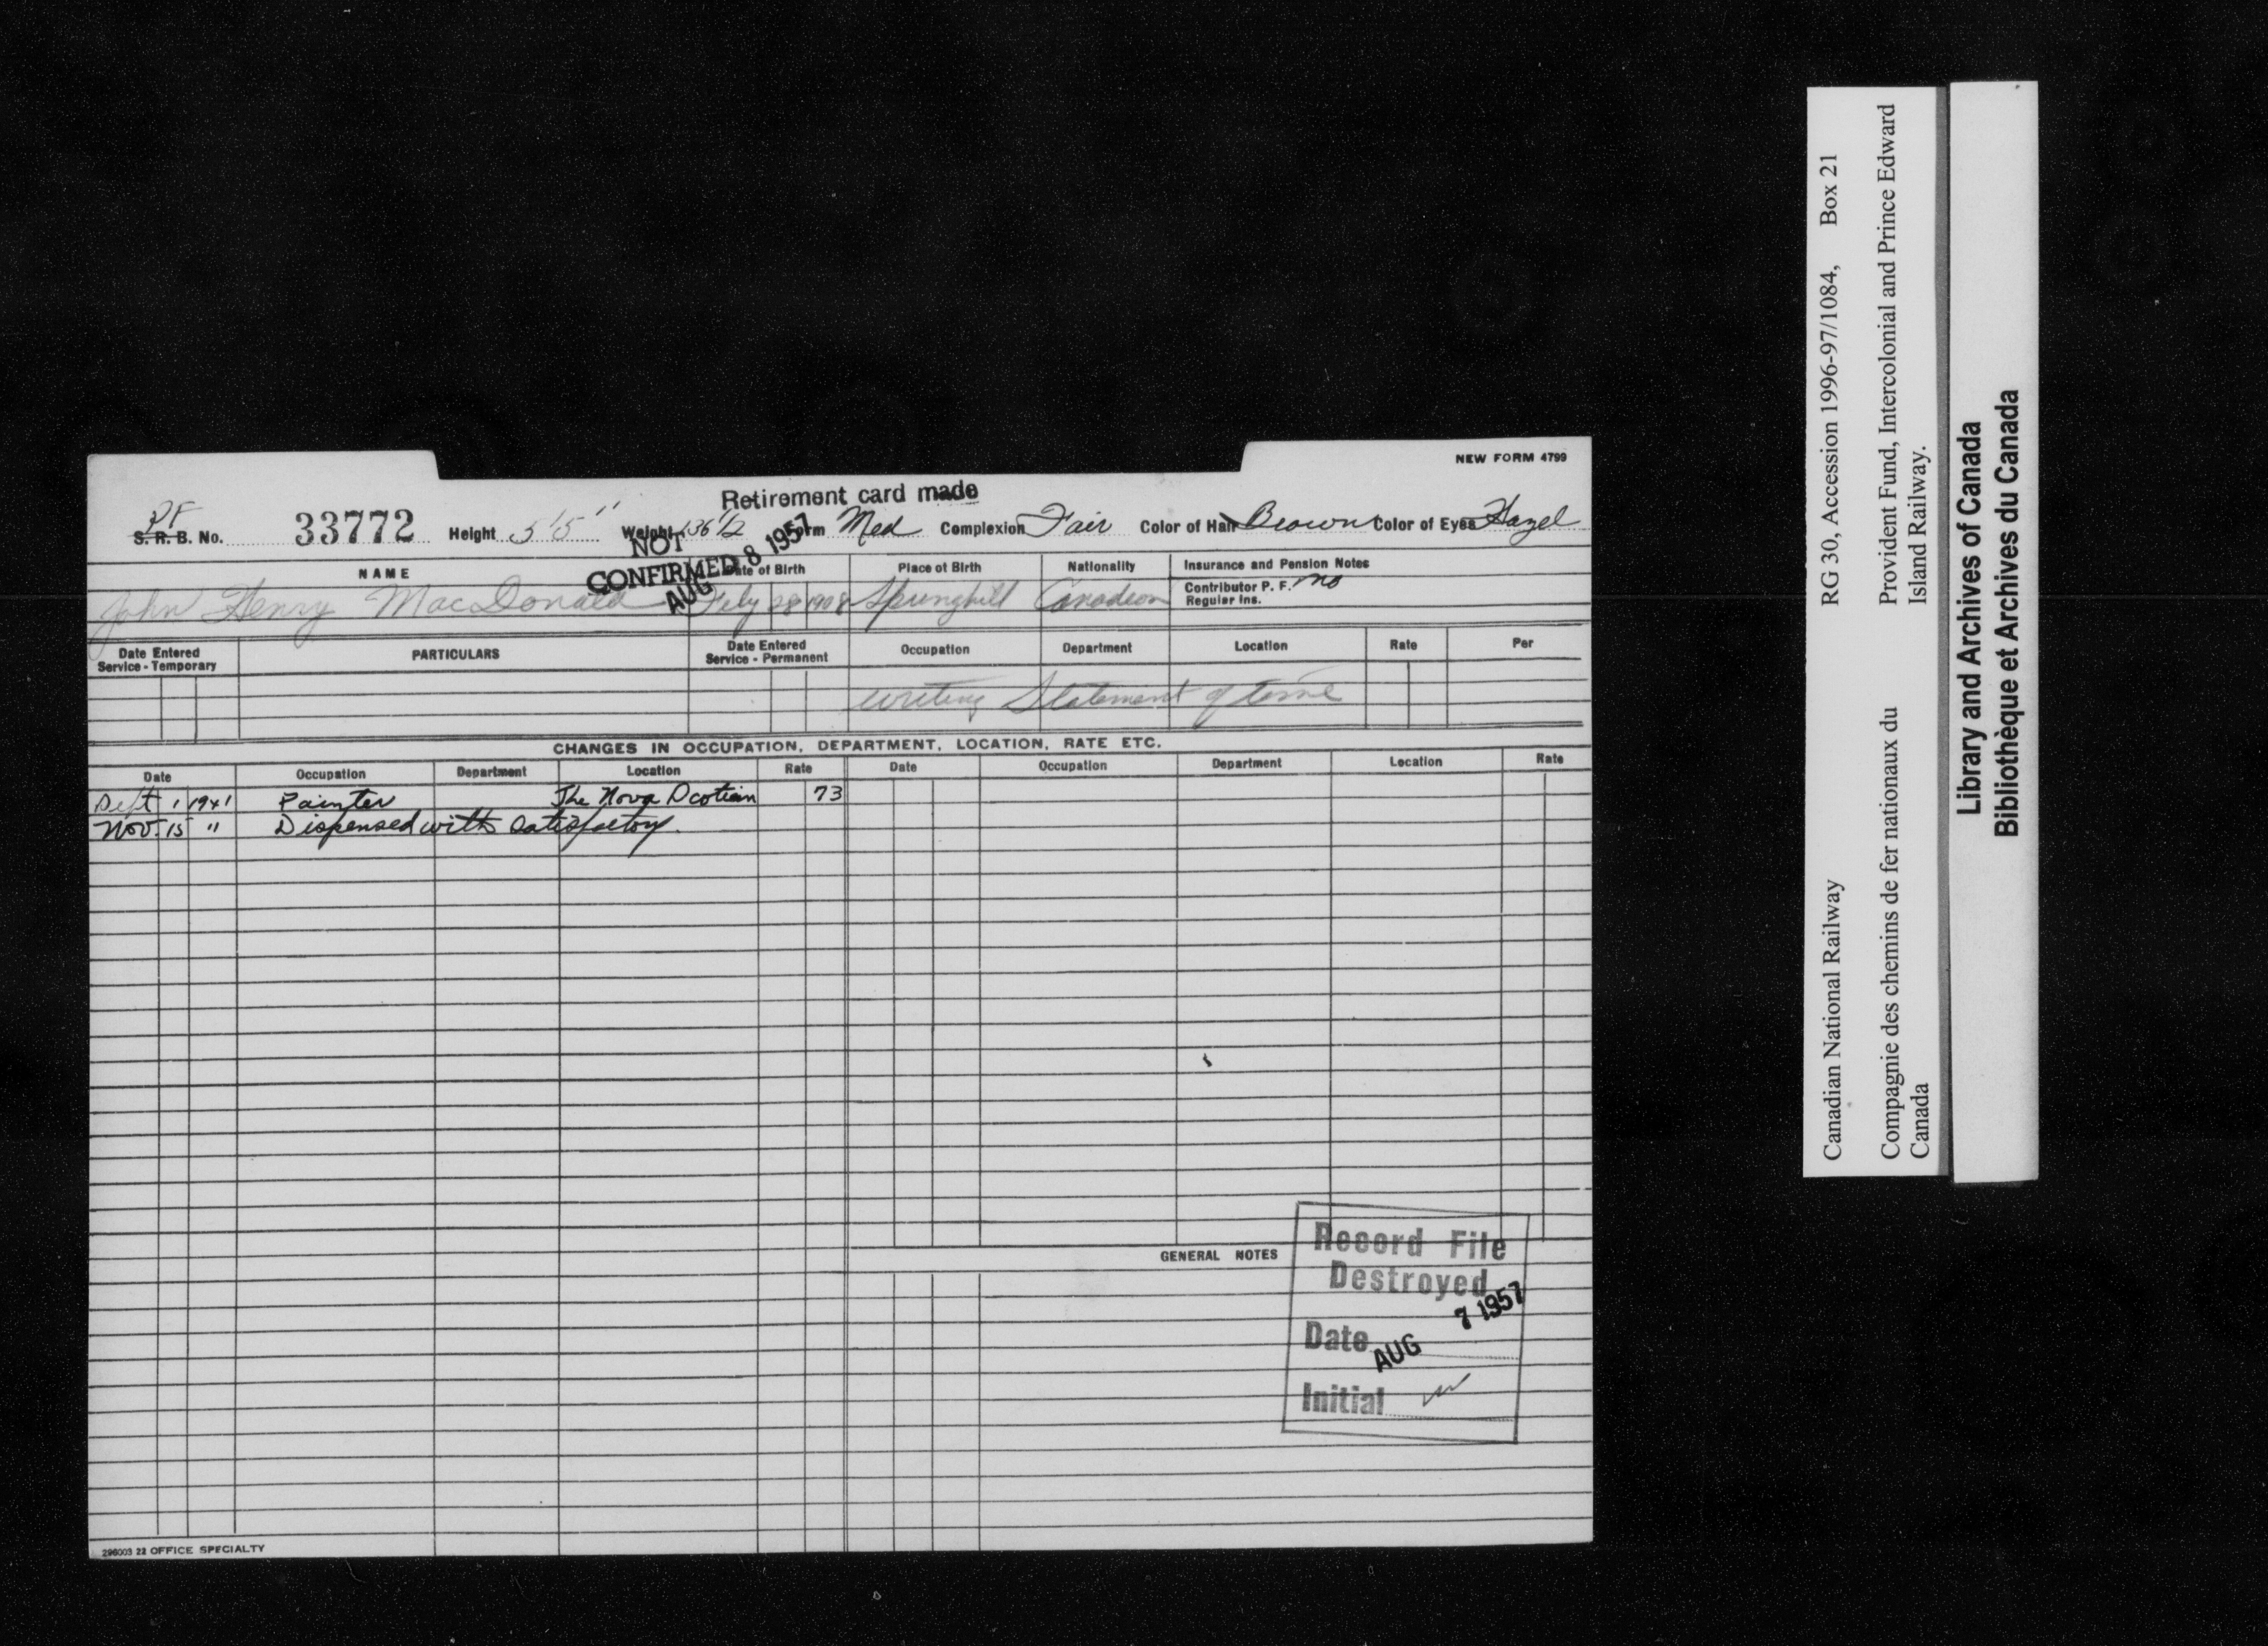 NEW FORM 4799
Retirement card made
PF
S. R. B. No. 33772 Height 5'5" Weight 136 1/2 Form Med Complexion Fair Color of Hair Brown Color of Eyes Hazel
NOT CONFIRMED AUG 8 1957
NAME Date of Birth Place of Birth Nationality Insurance and Pension Notes
Contributor P. F. no
Regular Ins.
John Henry MacDonald Feby 28 1908 Springhill Canadian
Date Entered Service - Temporary PARTICULARS Date Entered Service - Permanent Occupation Department Location Rate Per
writing Statement of time
CHANGES IN OCCUPATION, DEPARTMENT, LOCATION, RATE ETC.
Date Occupation Department Location Rate Date Occupation Department Location Rate
Sept 1 1941 Painter The Nova Scotian 73
Nov. 15 " Dispensed with Satisfactory.
GENERAL NOTES
Record File
Destroyed
Date AUG 7 1957
Initial
296003 22 OFFICE SPECIALTY
Canadian National Railway RG 30, Accession 1996-97/1084, Box 21
Compagnie des chemins de fer nationaux du Canada
Provident Fund, Intercolonial and Prince Edward Island Railway.
Library and Archives of Canada
Bibliothèque et Archives du Canada